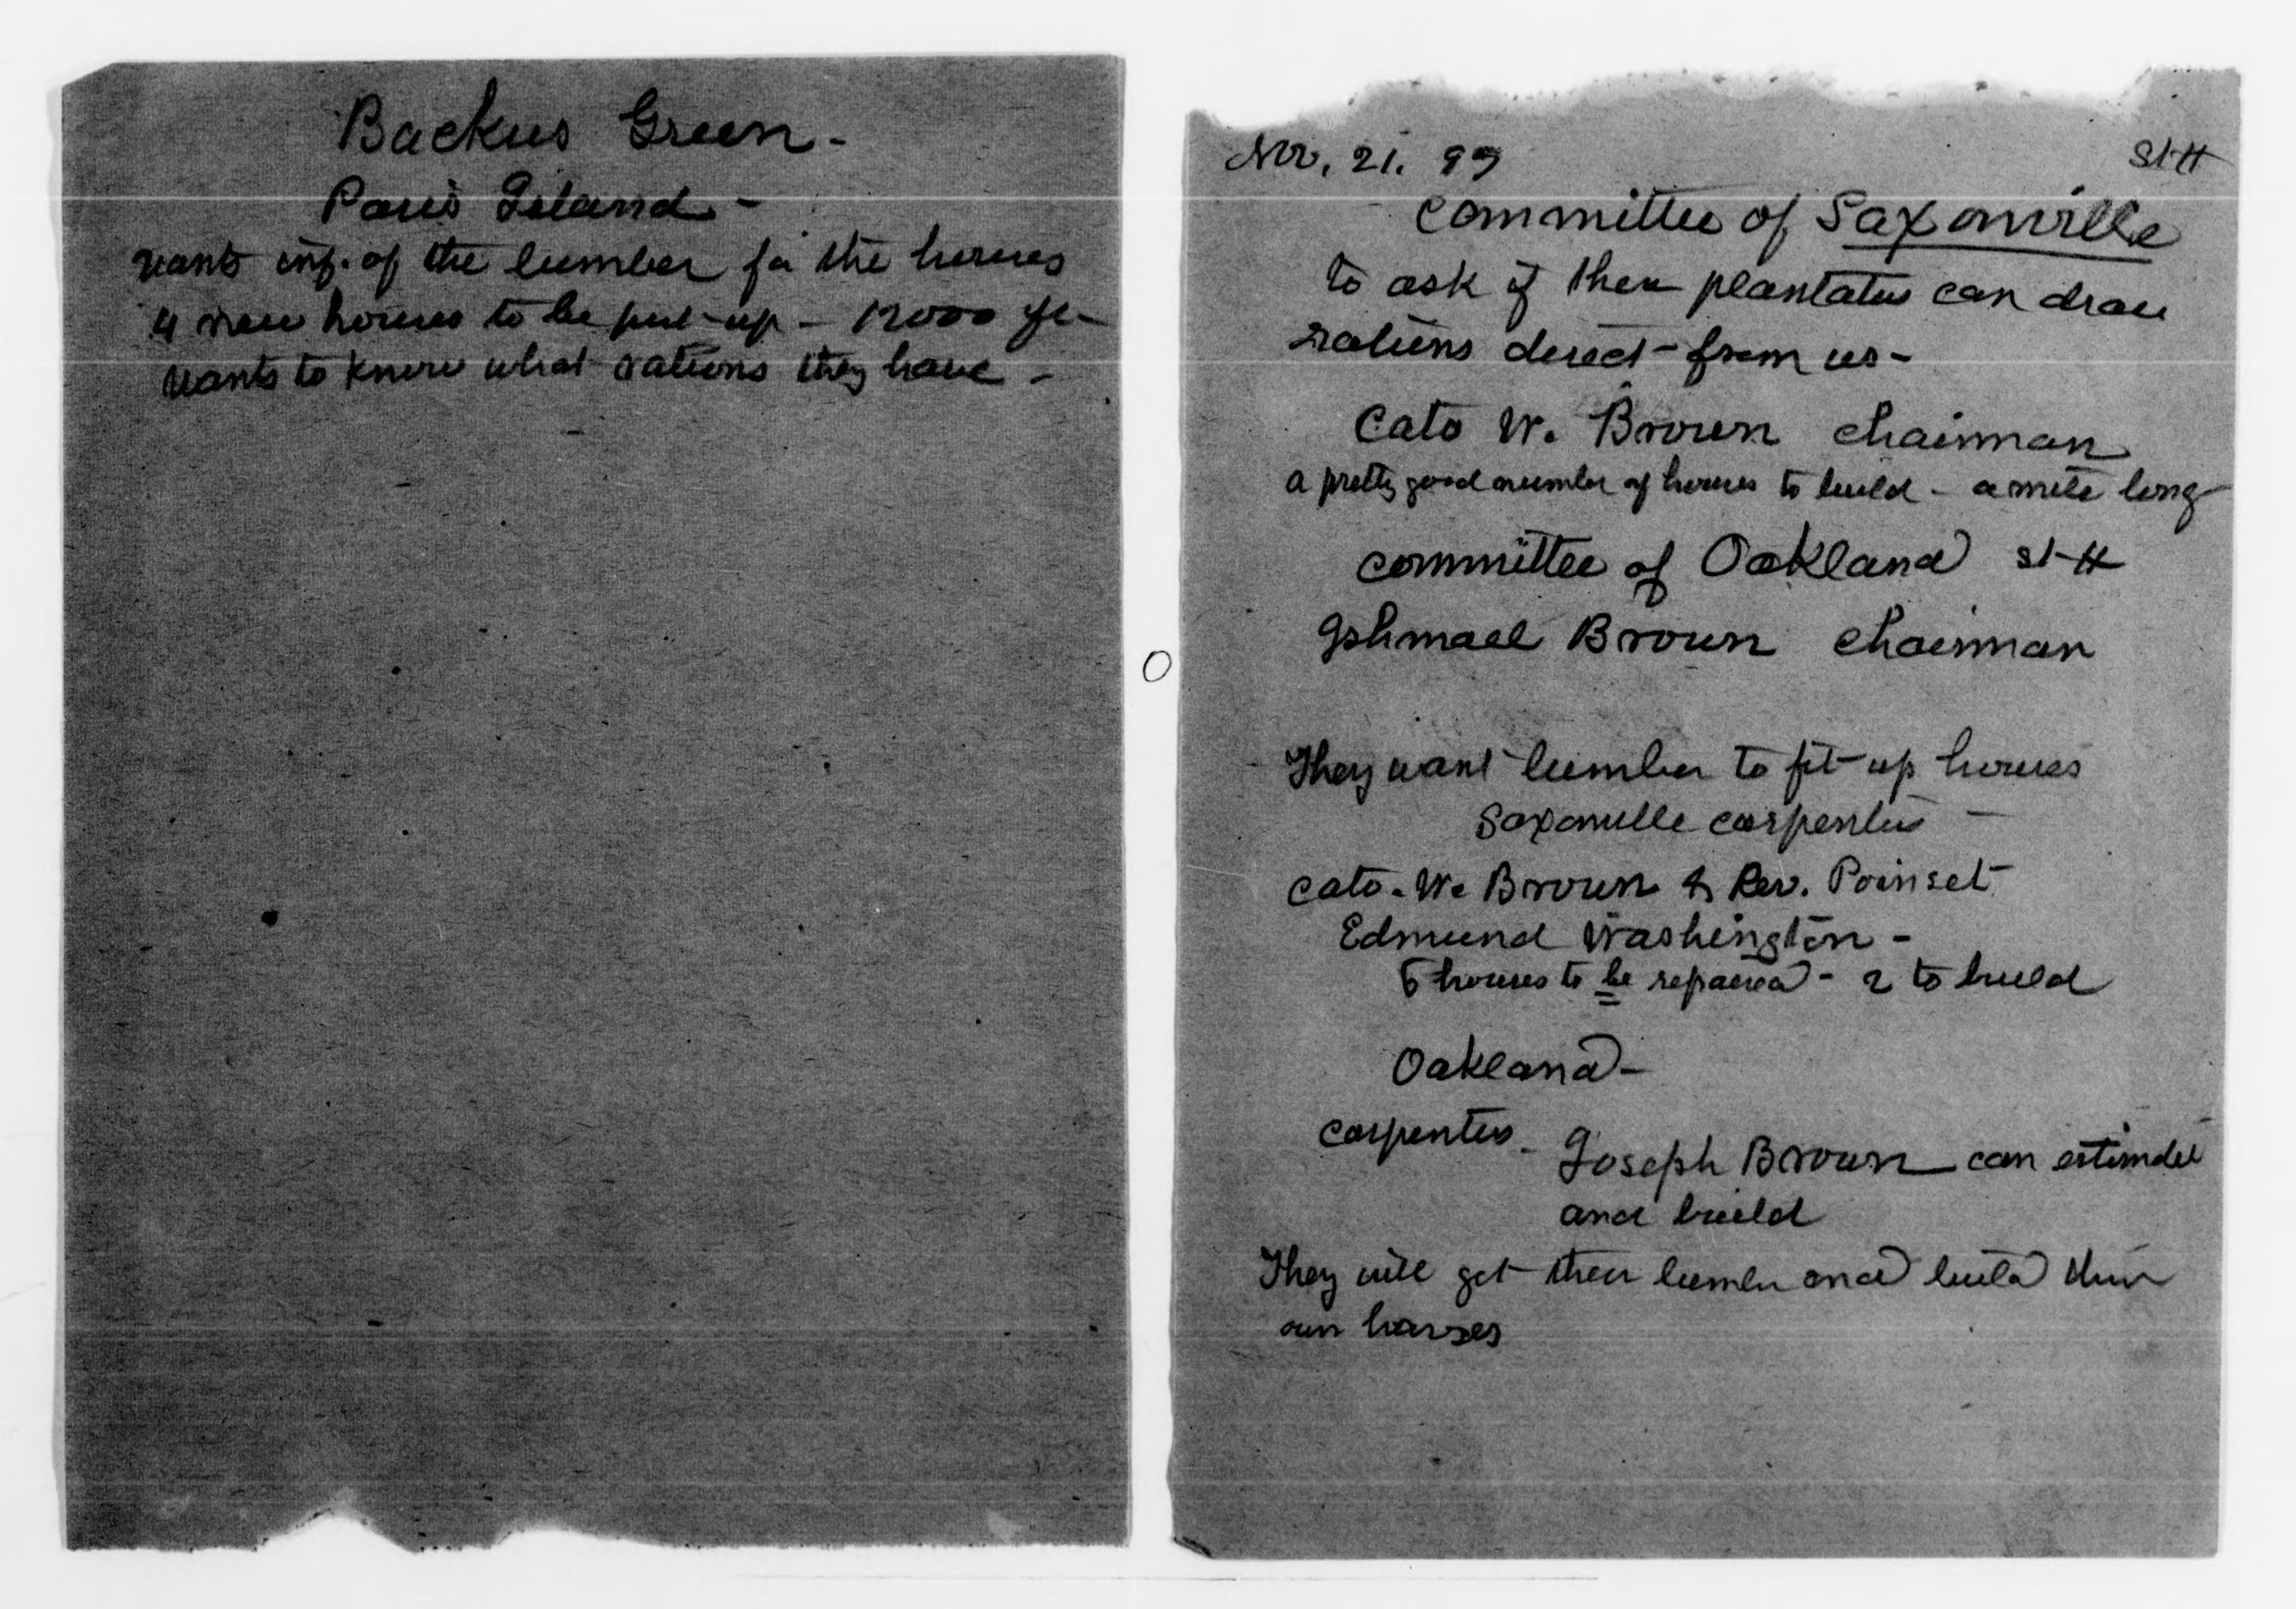 Backus Green -
Paris Island -
wants inf. of the lumber for the houses
4 new houses to be put up - 12000 ft -
wants to know what rations they have -
Nov. 21. 93 St H
Committee of Saxonville
to ask if their plantation can draw
rations direct from us -
Cato W. Brown chairman
a pretty good number of houses to build - a mile long
committee of Oakland St H
Ishmael Brown chairman
They want lumber to fit up houses
Saxonville carpenters -
Cato. W. Brown & Rev. Poinset
Edmund Washington -
5 houses to be repaired - 2 to build
Oakland -
carpenters - Joseph Brown can estimate
and build
They will get their lumber and build their
own houses